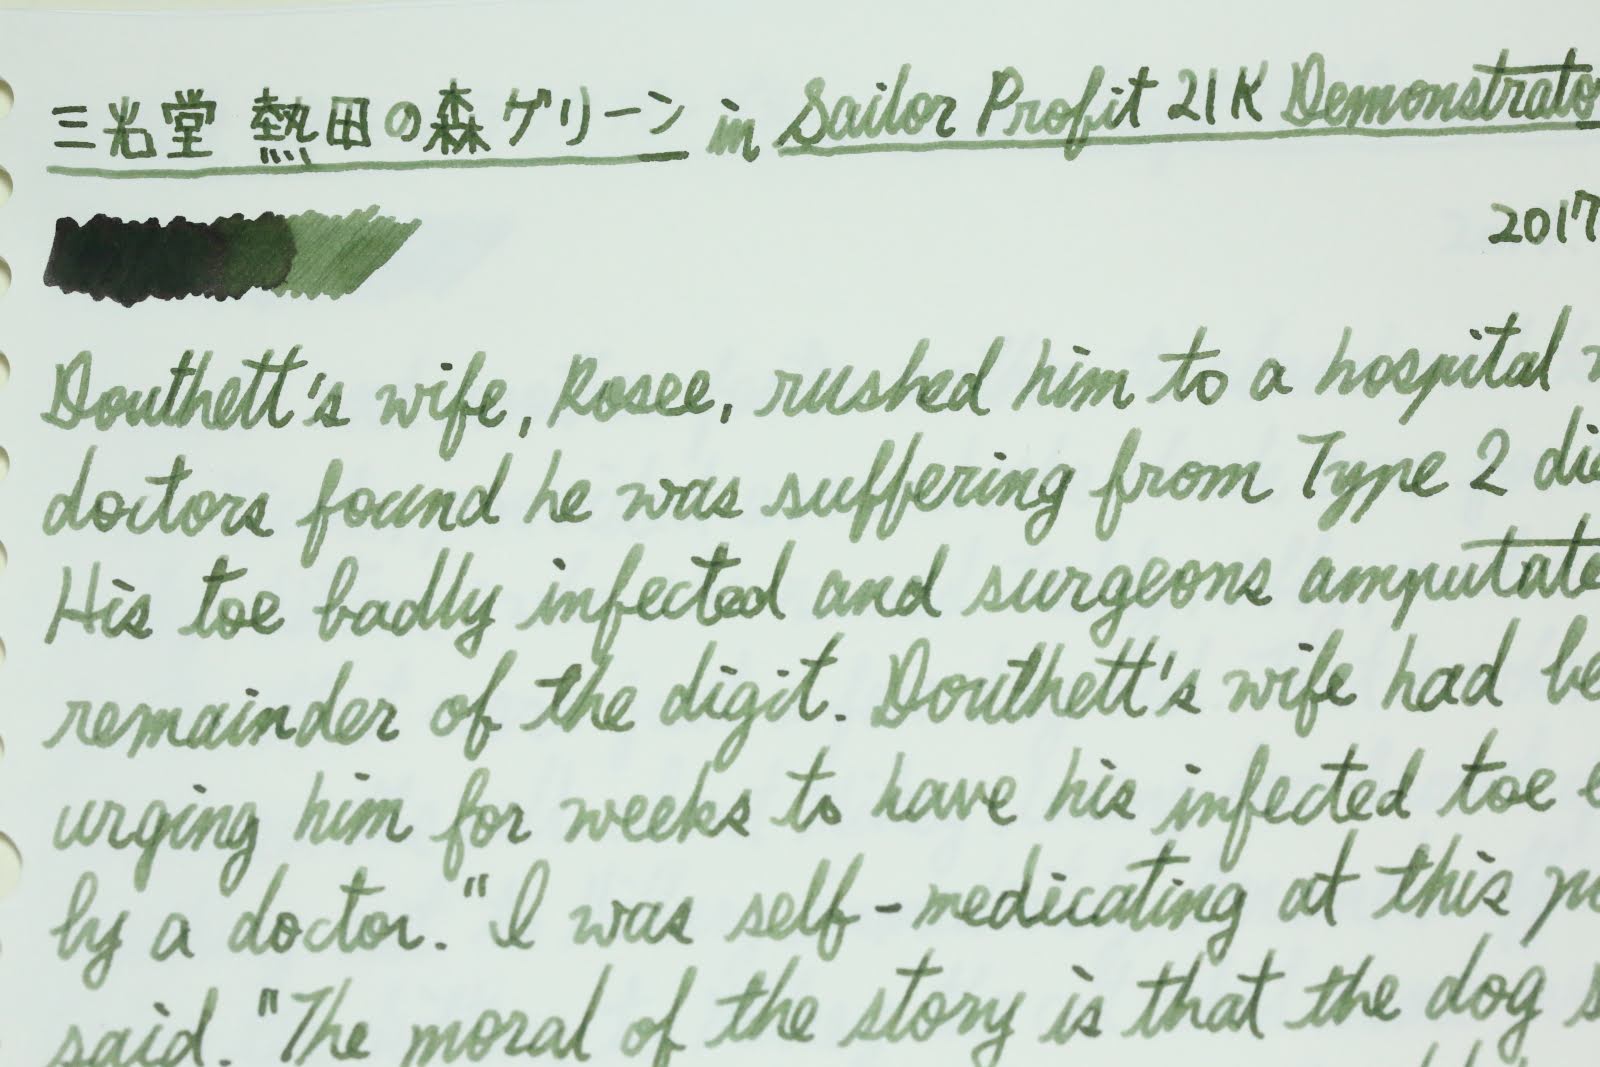 三光堂 熱田の森グリーン in Sailor Profit 21K Demonstrato
2017
Douthett's wife, Rosee, rushed him to a hospital
doctors found he was suffering from Type 2 di
His toe badly infected and surgeons amputate
remainder of the digit. Douthett's wife had be
urging him for weeks to have his infected toe e
by a doctor. "I was self-medicating at this
said. "The moral of the story is that the dog s